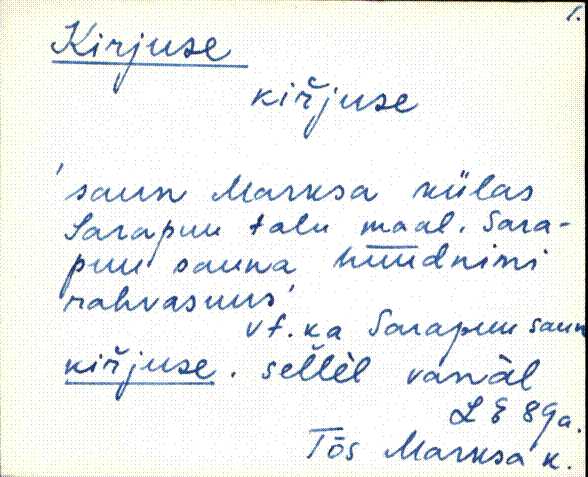 1.
Kirjuse
kiřjuse
'saun Marksa külas
Sarapuu talu maal. Sara-
puu sauna hüüdnimi
rahvasuus'
vt. ka Sarapuu saun
kiřjuse. sellèl vanàl
L E 89a.
Tõs Marksa k.